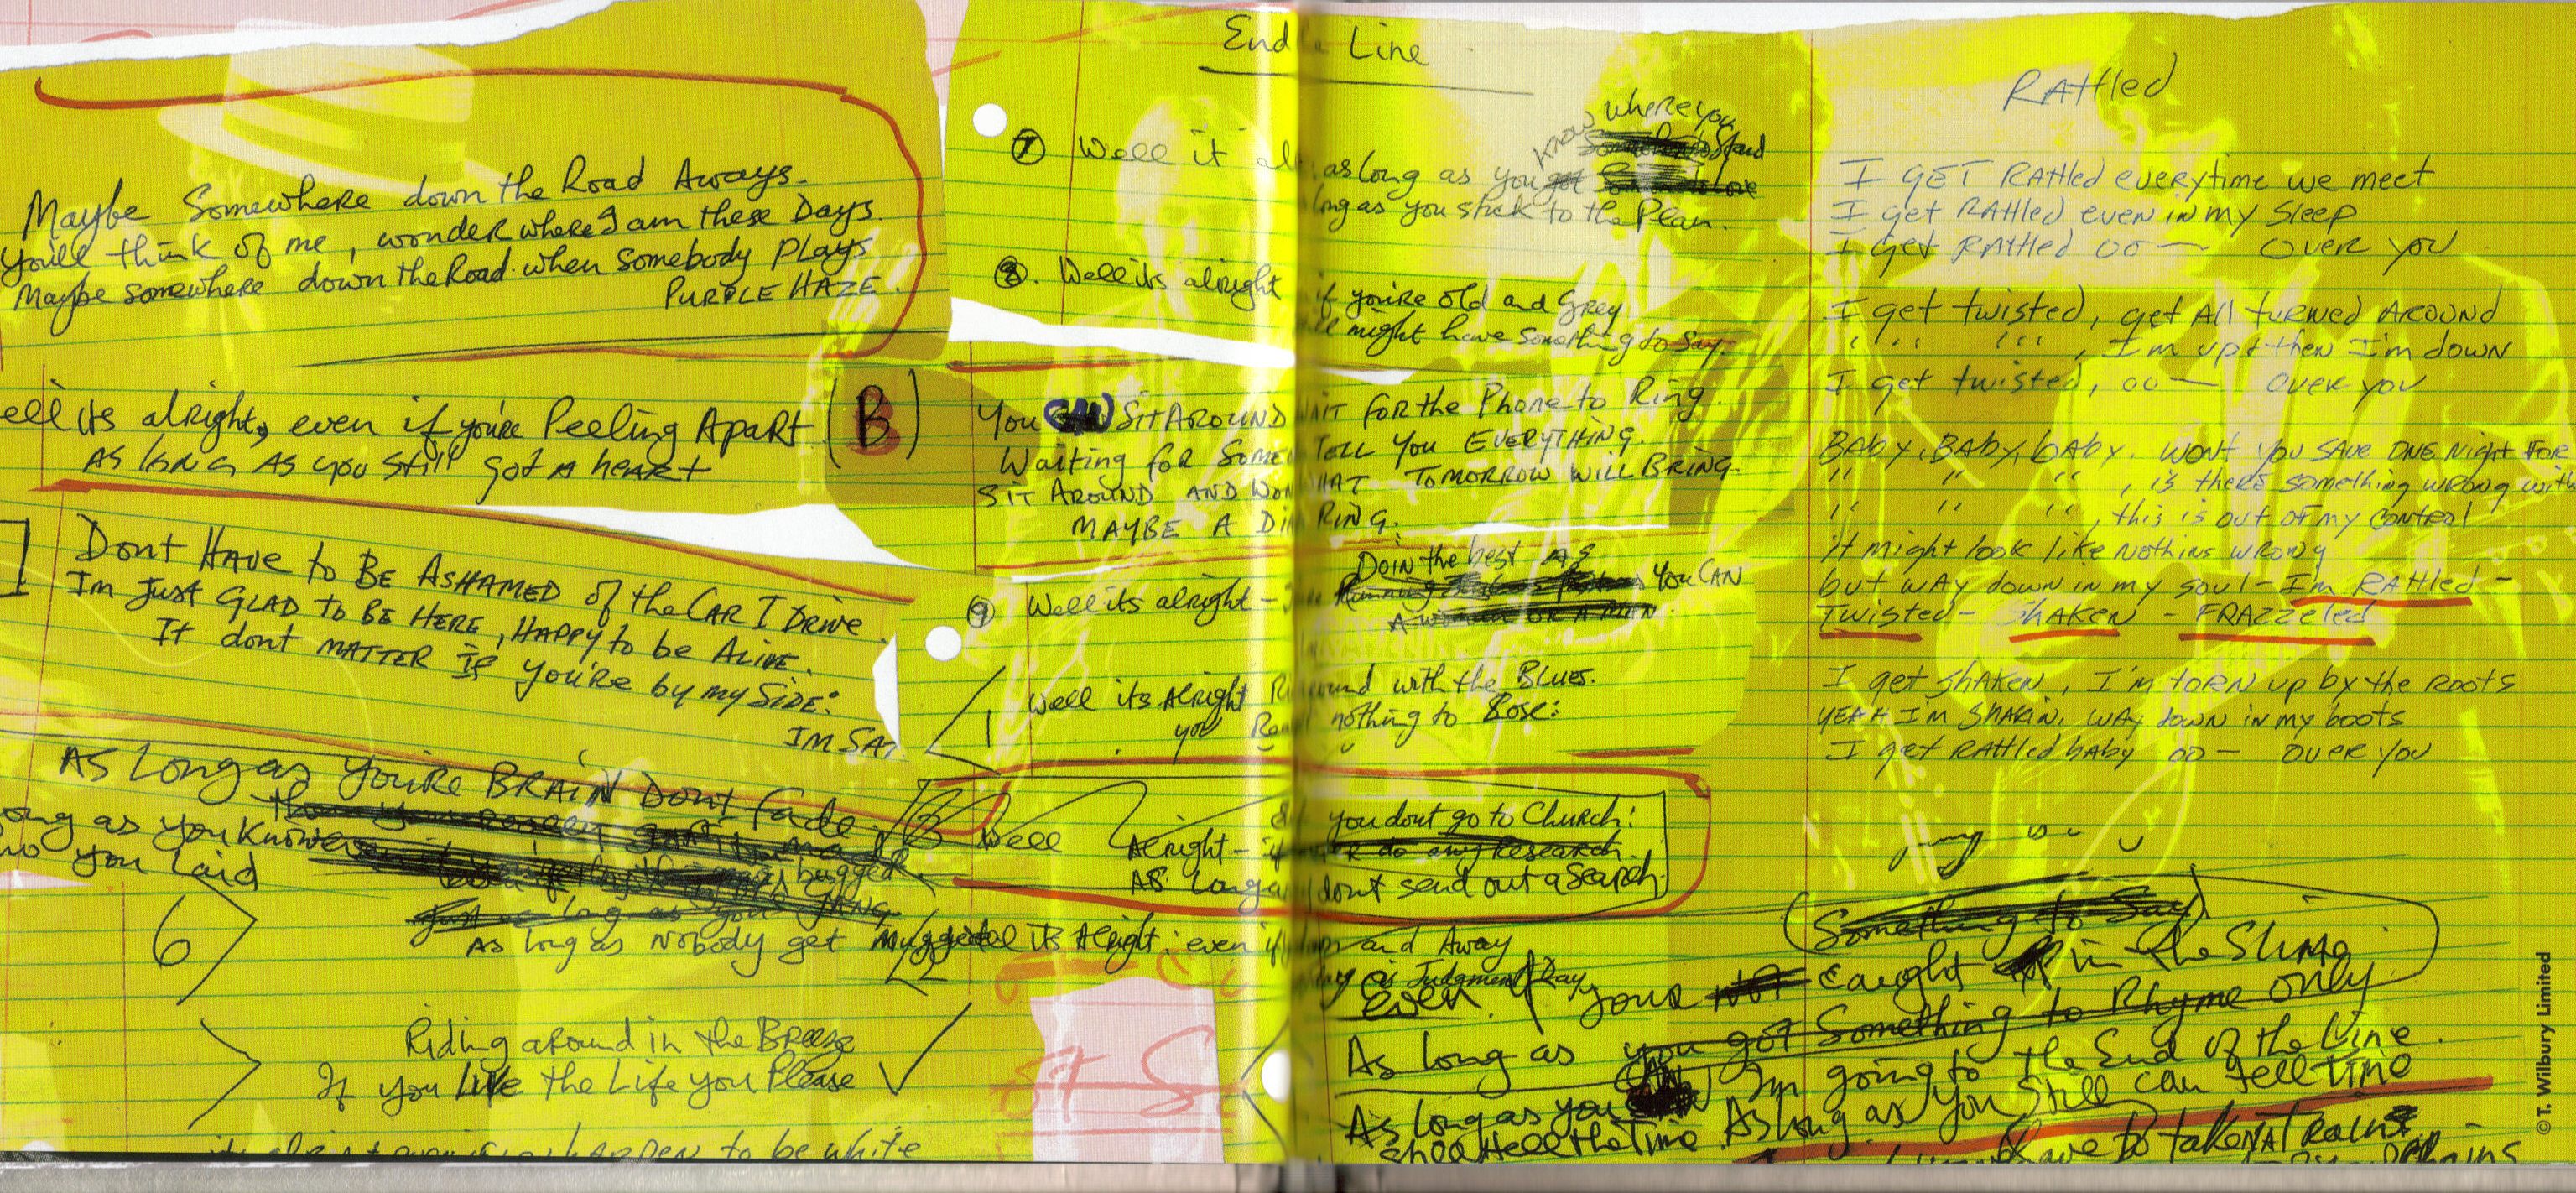 Maybe Somewhere down the Road Aways.
You'll think of me, wonder where I am these Days.
Maybe somewhere down the Road when somebody Plays
PURPLE HAZE.
ell its alright, even if you're Peeling Apart (B)
As long as you still got a heart
Dont Have to Be Ashamed of the Car I Drive.
Im Just Glad to be here, Happy to be Alive.
It dont matter if you're by my side:
IM SA
As Long as You're BRAIN Dont fade
ong as you know
you Laid
bugged
Just as long as your
As long as Nobody get
6
Riding around in the Breeze
If you live the Life you Please
to be white
End Line
7 Well it al
know where you
Stand
as long as you got
long as you stick to the Plan.
8. Well its alright if you're old and Grey
might have something to say.
You can SIT AROUND WAIT FOR the Phone to Ring.
Waiting for Some TELL YOU EVERYTHING.
SIT AROUND AND WON WHAT TOMORROW WILL BRING.
MAYBE A DI RING.
Doin the best As
9 Well its alright - YOU CAN
A woman OR A MAN.
Well its Alright Ri ound with the Blues.
you nothing to Lose:
Well Alright - if you dont go to Church:
or do any Research.
As Long as dont send out a Search.
its Alright, even if and Away
is Judgment Day
even if your not caught in the Slime
(Something to Say)
As long as you got Something to Rhyme only
Im going to the End of the Line.
As long as you can As long as you Still can tell time
still tell the Time
have to take
Rattled
I GET Rattled everytime we meet
I get Rattled even in my sleep
I get Rattled oo — over you
I get twisted, get All turned AROUND
" " " " , I'm up & then I'm down
I get twisted, oo — over you
BABY, BABY, baby. Wont you save one night for
" " " , is there something wrong with
" " " , this is out of my control
it might look like nothing wrong
but way down in my soul - I'm Rattled -
Twisted - Shaken - FRAZZeled
I get shaken, I'm torn up by the roots
YEAH I'm shakin, way down in my boots
I get Rattled baby oo — over you
© T. Wilbury Limited